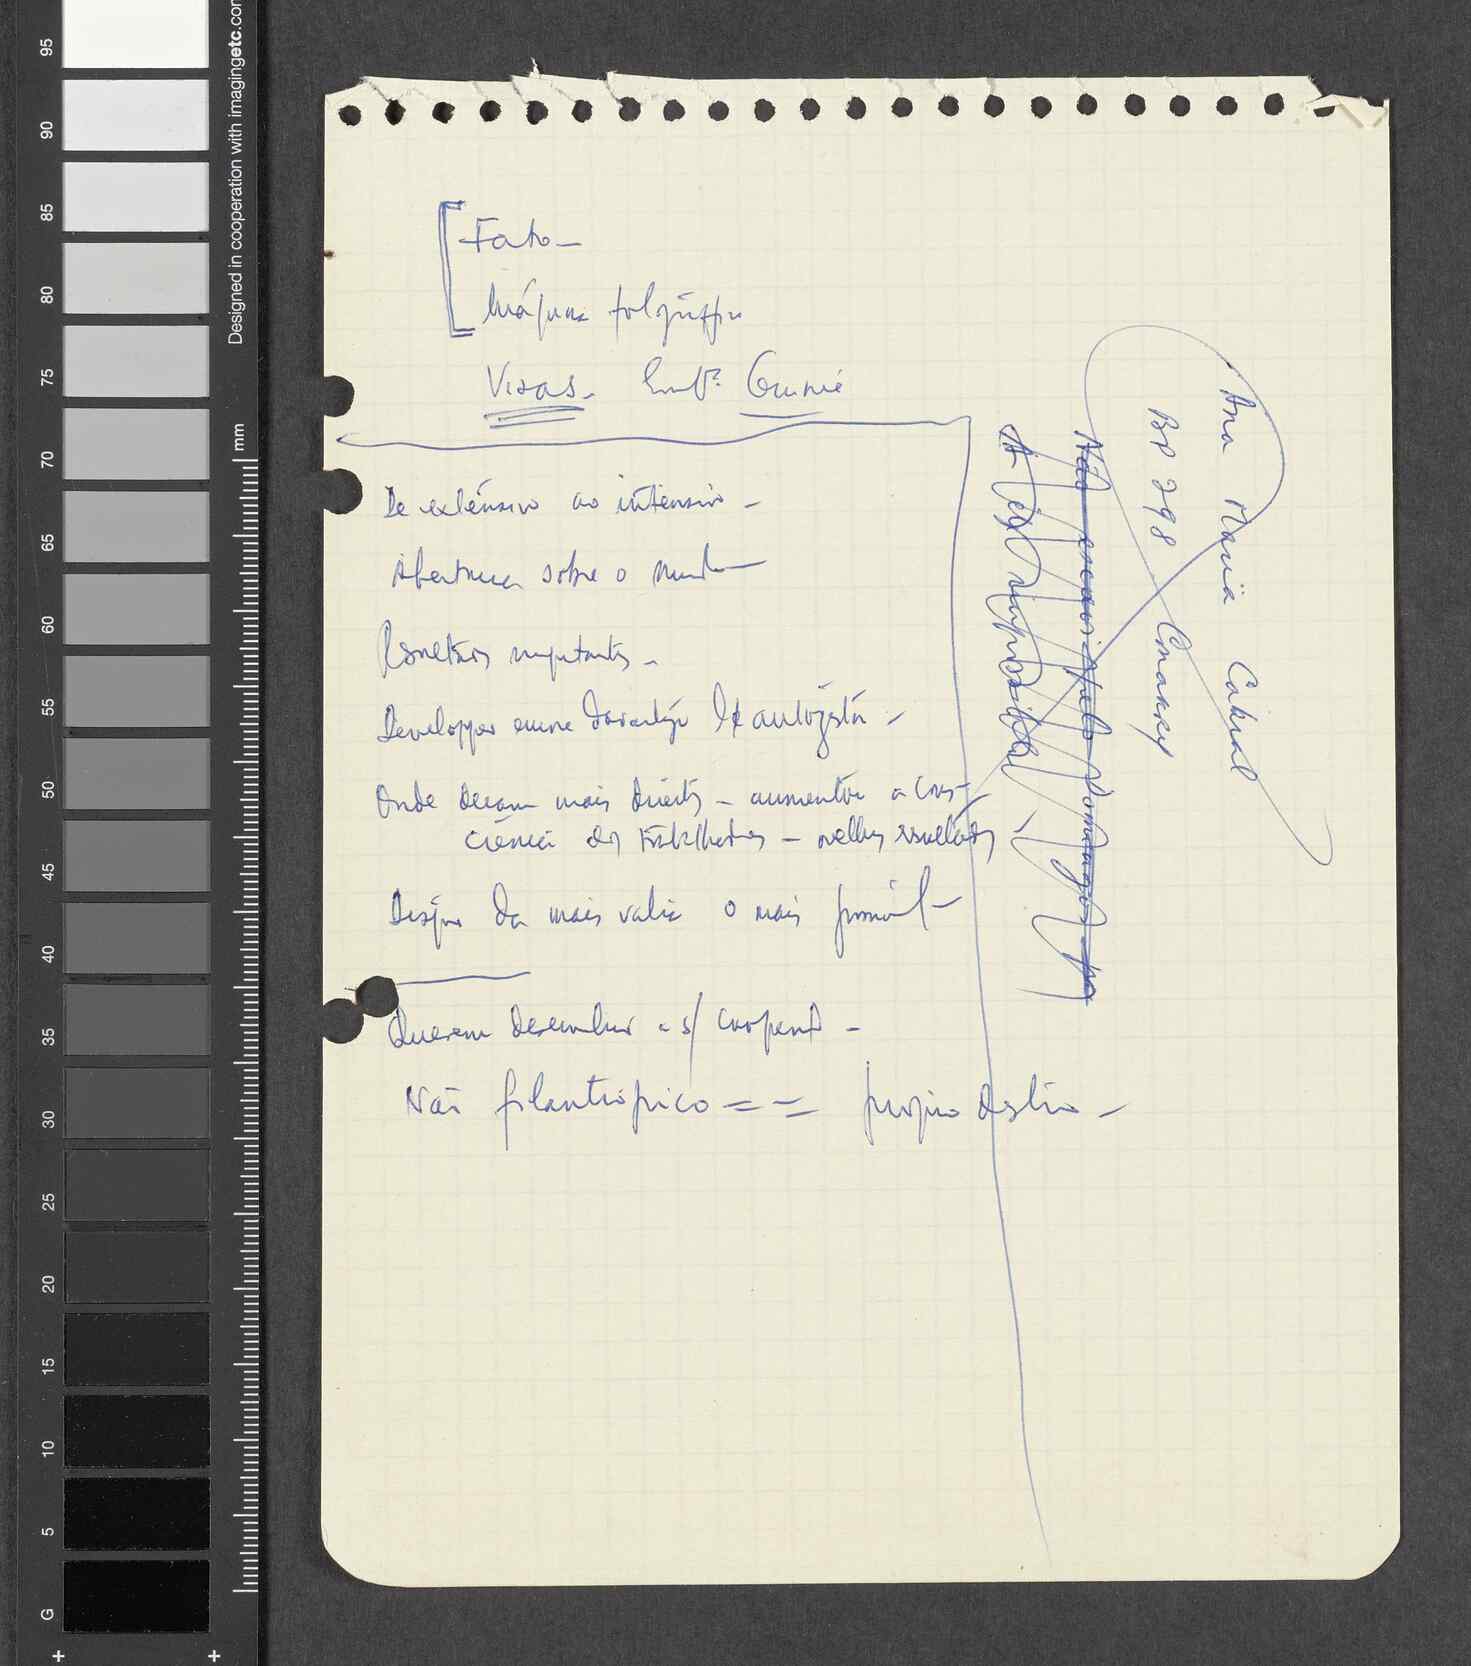 Fato –
Máquina fotográfica
Visas – Embª. Guiné
De extensivo ao intensivo –
Abertura sobre o mundo
Resultados importantes –
Developper encore davantage l'autogestion –
Onde deram mais direitos – aumentou a cons-
ciência dos trabalhadores – melhores resultados
da mais valia o mais possível –
Querem desenvolver a s/ cooperação –
Não filantrópico = = próprio destino –
Ana Maria Cabral
BP 298 Conakry
95
90
85
80
75
70
65
60
55
50
45
40
35
30
25
20
15
10
5
G
mm
Designed in cooperation with imagingetc.com